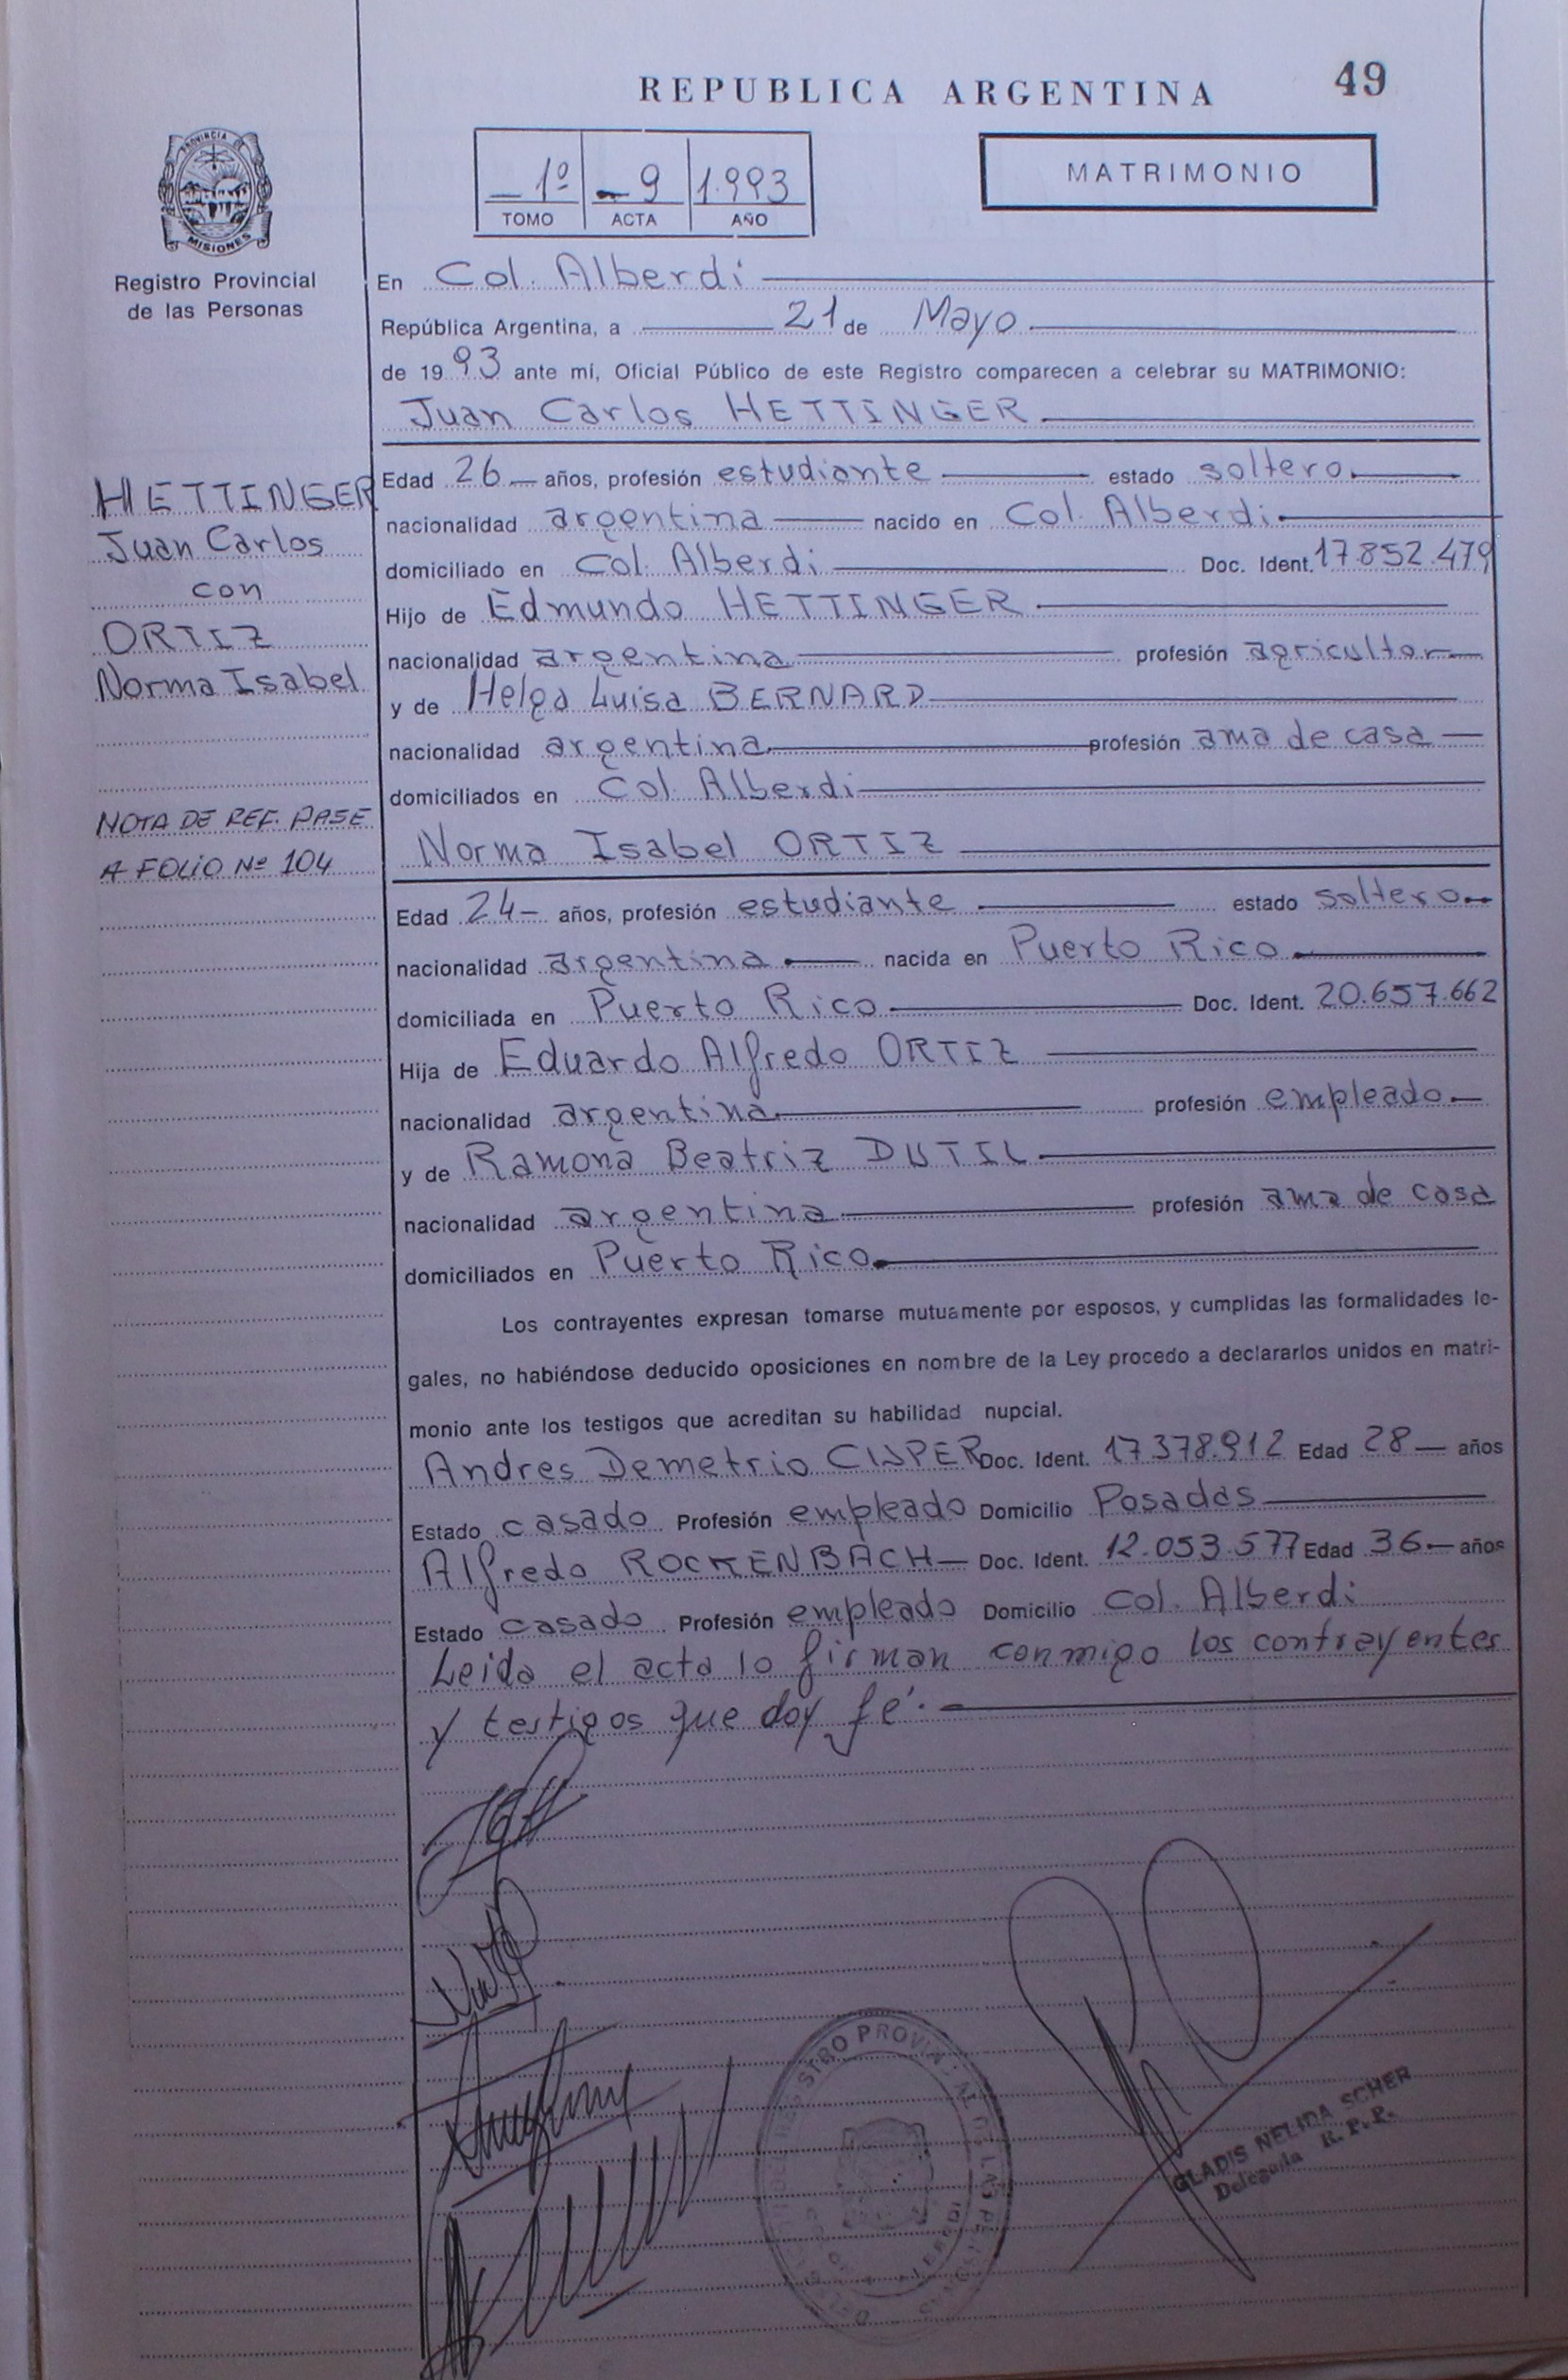 REPUBLICA ARGENTINA
49
PROVINCIA DE
MISIONES
Registro Provincial
de las Personas
1º - 9 1.993
TOMO ACTA AÑO
MATRIMONIO
En Col. Alberdi
República Argentina, a 21 de Mayo
de 19 93 ante mí, Oficial Público de este Registro comparecen a celebrar su MATRIMONIO:
Juan Carlos HETTINGER
HETTINGER
Juan Carlos
con
ORTIZ
Norma Isabel
NOTA DE REF. PASE
A FOLIO Nº 104
Edad 26 años, profesión estudiante estado soltero
nacionalidad argentina nacido en Col. Alberdi
domiciliado en Col. Alberdi Doc. Ident. 17.852.479
Hijo de Edmundo HETTINGER
nacionalidad argentina profesión agricultor
y de Helga Luisa BERNARD
nacionalidad argentina profesión ama de casa
domiciliados en Col. Alberdi
Norma Isabel ORTIZ
Edad 24 años, profesión estudiante estado soltero
nacionalidad argentina nacida en Puerto Rico
domiciliada en Puerto Rico Doc. Ident. 20.657.662
Hija de Eduardo Alfredo ORTIZ
nacionalidad argentina profesión empleado
y de Ramona Beatriz DUTIL
nacionalidad argentina profesión ama de casa
domiciliados en Puerto Rico
Los contrayentes expresan tomarse mutuamente por esposos, y cumplidas las formalidades le-
gales, no habiéndose deducido oposiciones en nombre de la Ley procedo a declararlos unidos en matri-
monio ante los testigos que acreditan su habilidad nupcial.
Andres Demetrio Doc. Ident. 17.378.912 Edad 28 años
Estado casado Profesión empleado Domicilio Posadas
Alfredo ROCKENBACH Doc. Ident. 12.053.577 Edad 36 años
Estado casado Profesión empleado Domicilio Col. Alberdi
Leida el acta lo firman conmigo los contrayentes
y testigos que doy fé.
REGISTRO PROVINCIAL DE LAS PERSONAS
GLADIS NELIDA SCHER
Delegada R. P. P.